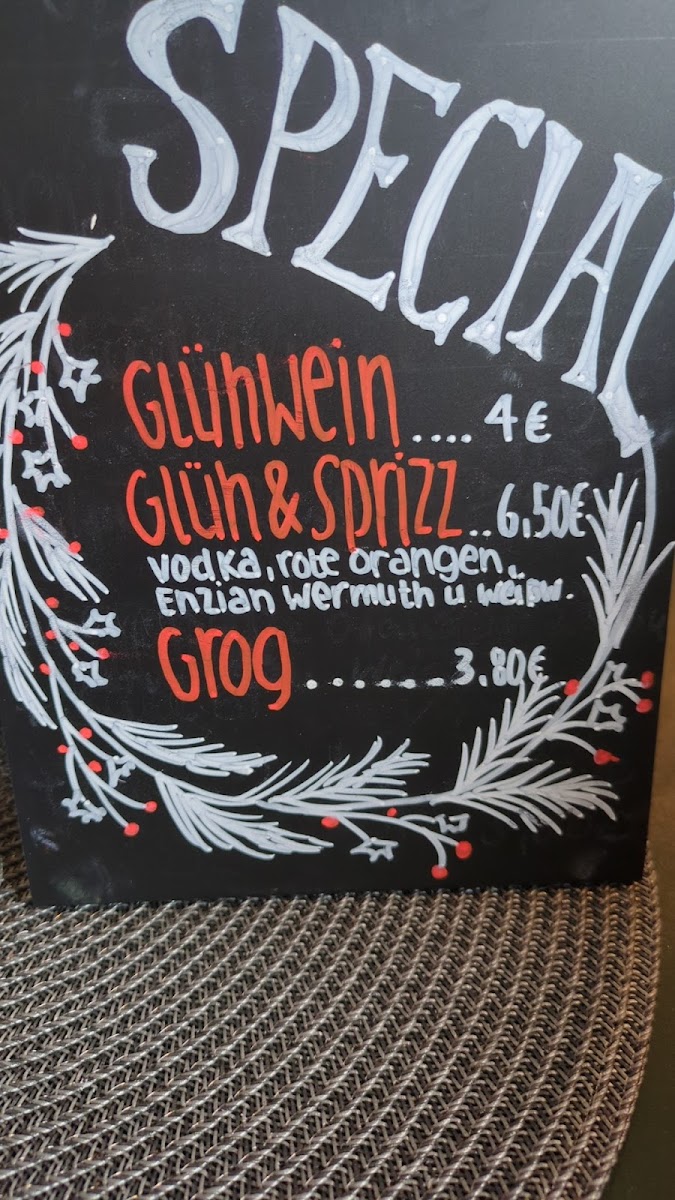 SPECIAL
Glühwein.... 4€
Glüh & Sprizz.. 6,50€
vodka, rote orangen,
Enzian wermuth u weißw.
Grog....... 3.80€